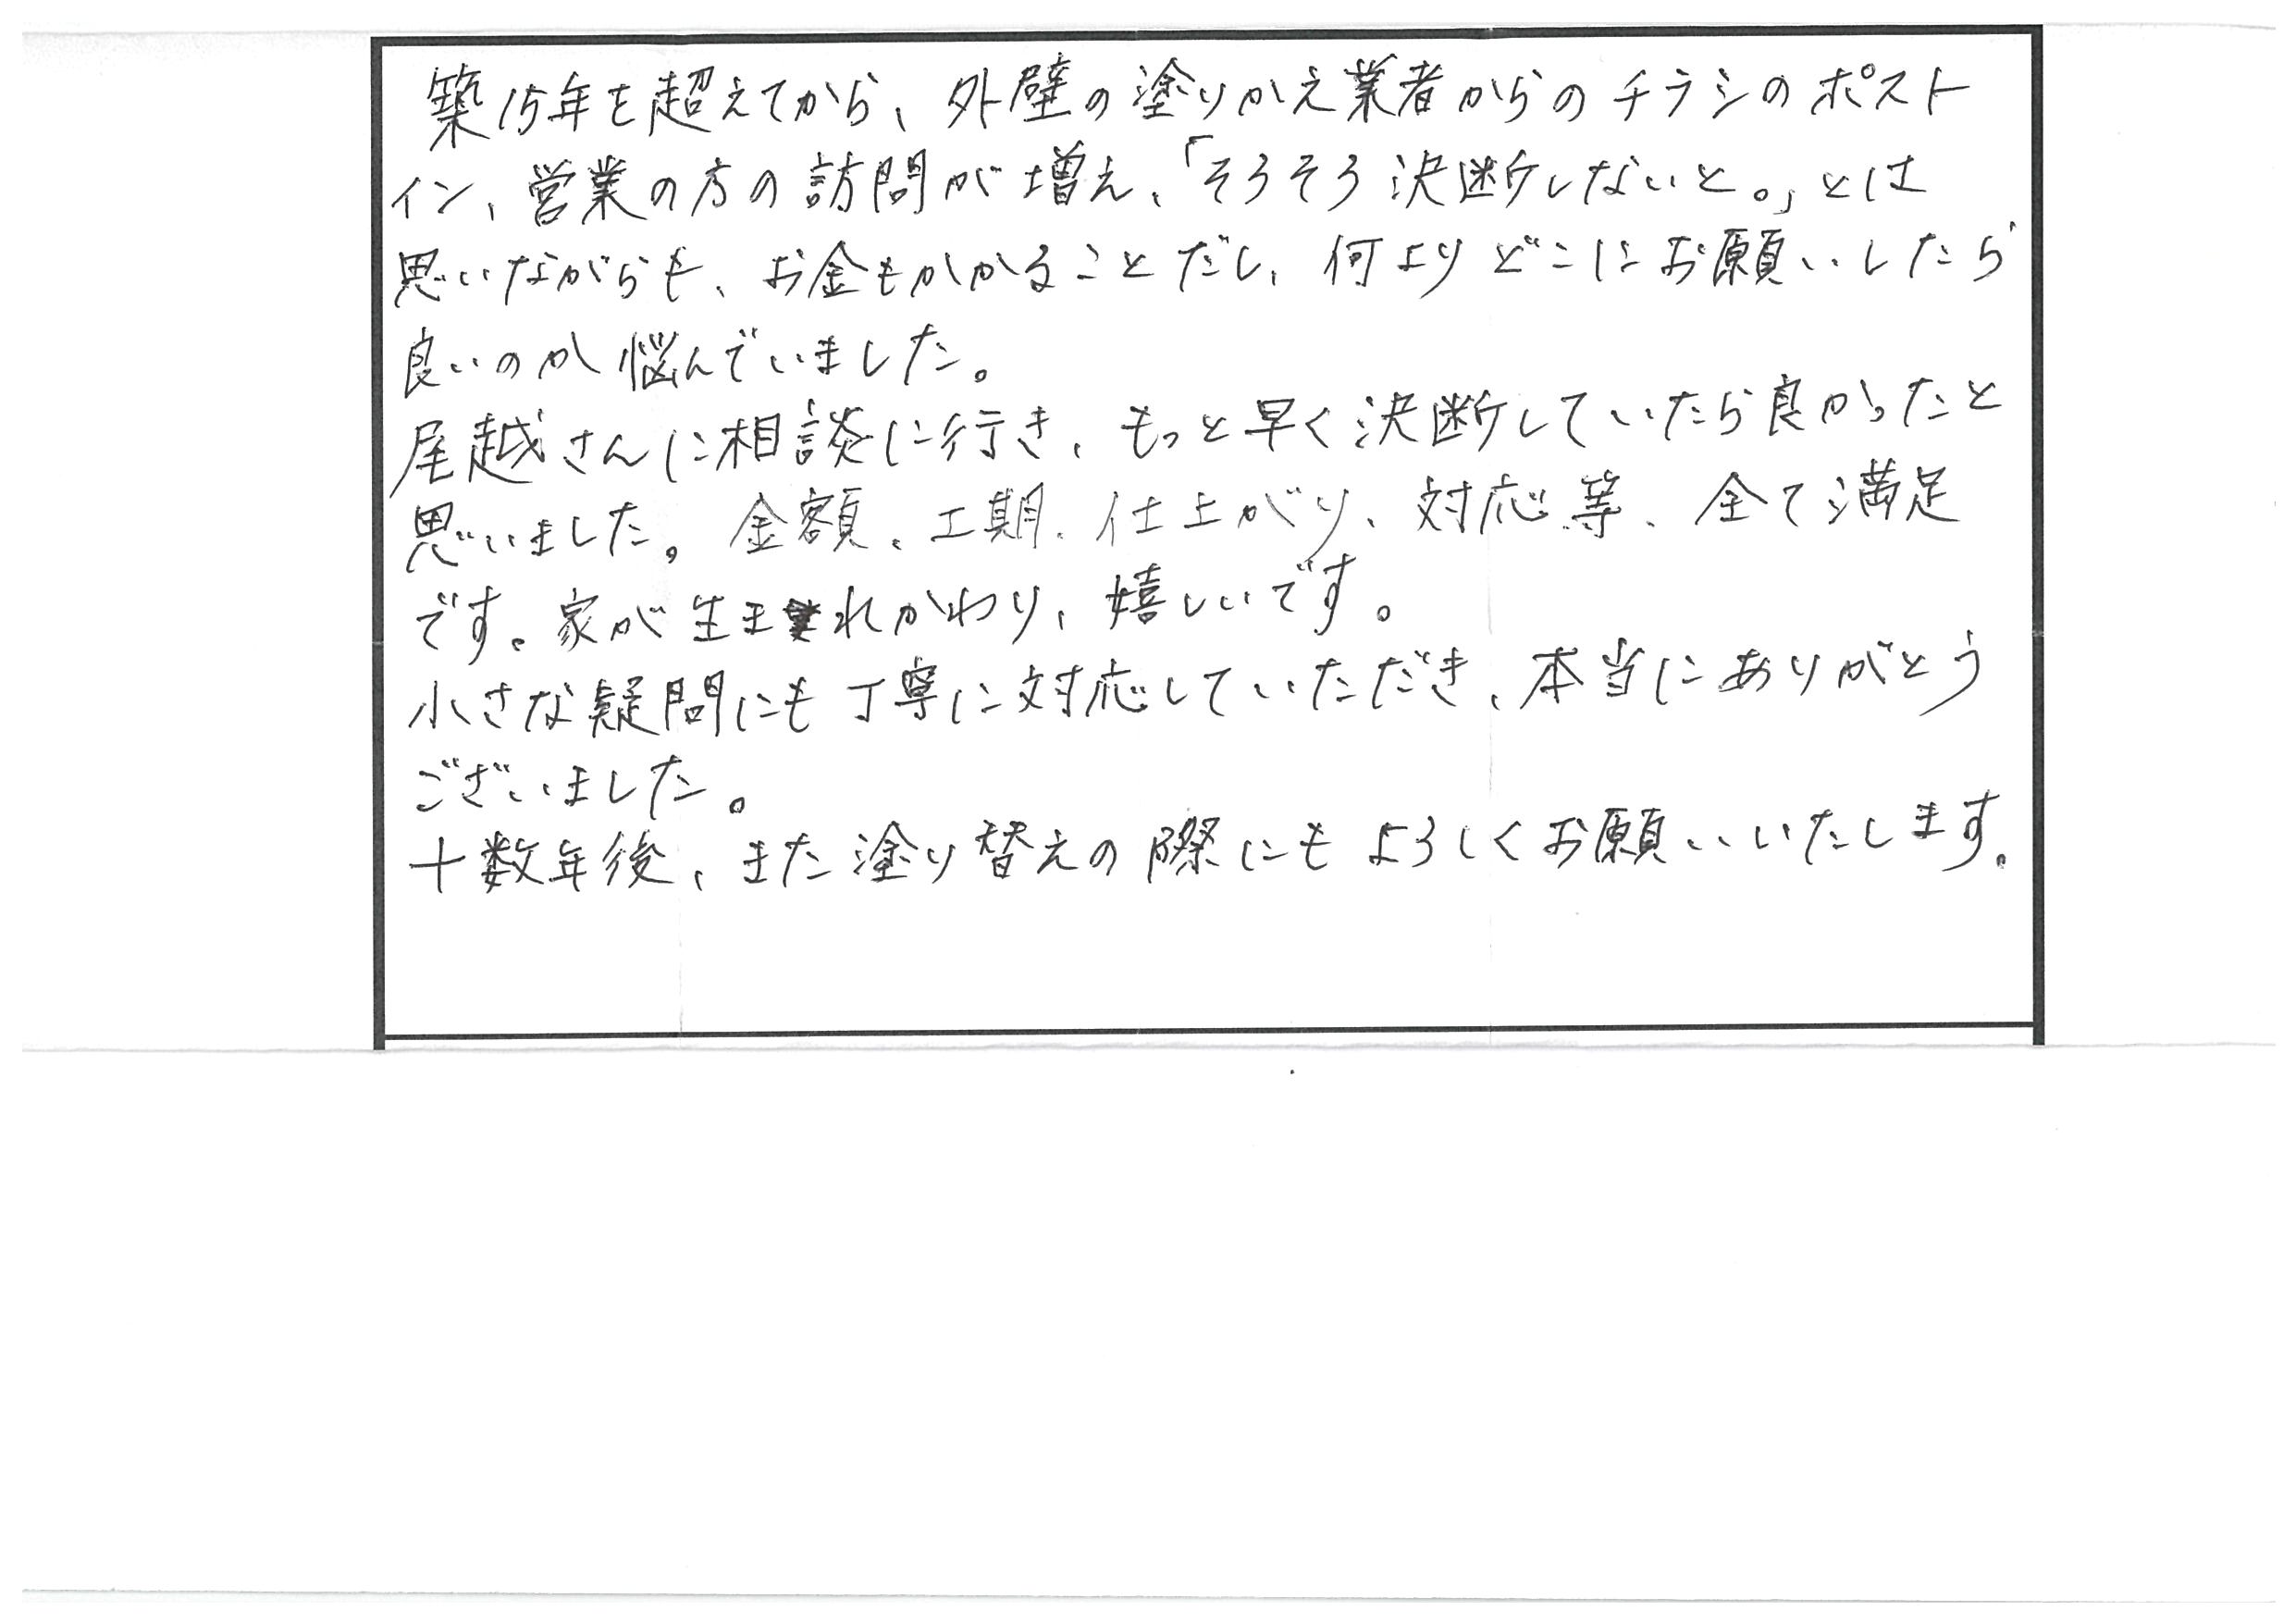 築15年を超えてから、外壁の塗りかえ業者からのチラシのポスト
イン、営業の方の訪問が増え、「そろそろ決断しないと。」とは
思いながらも、お金もかかることだし、何よりどこにお願いしたら
良いのか悩んでいました。
尾越さんに相談に行き、もっと早く決断していたら良かったと
思いました。金額、工期、仕上がり、対応等、全て満足
です。家が生まれかわり、嬉しいです。
小さな疑問にも丁寧に対応していただき、本当にありがとう
ございました。
十数年後、また塗り替えの際にもよろしくお願いいたします。